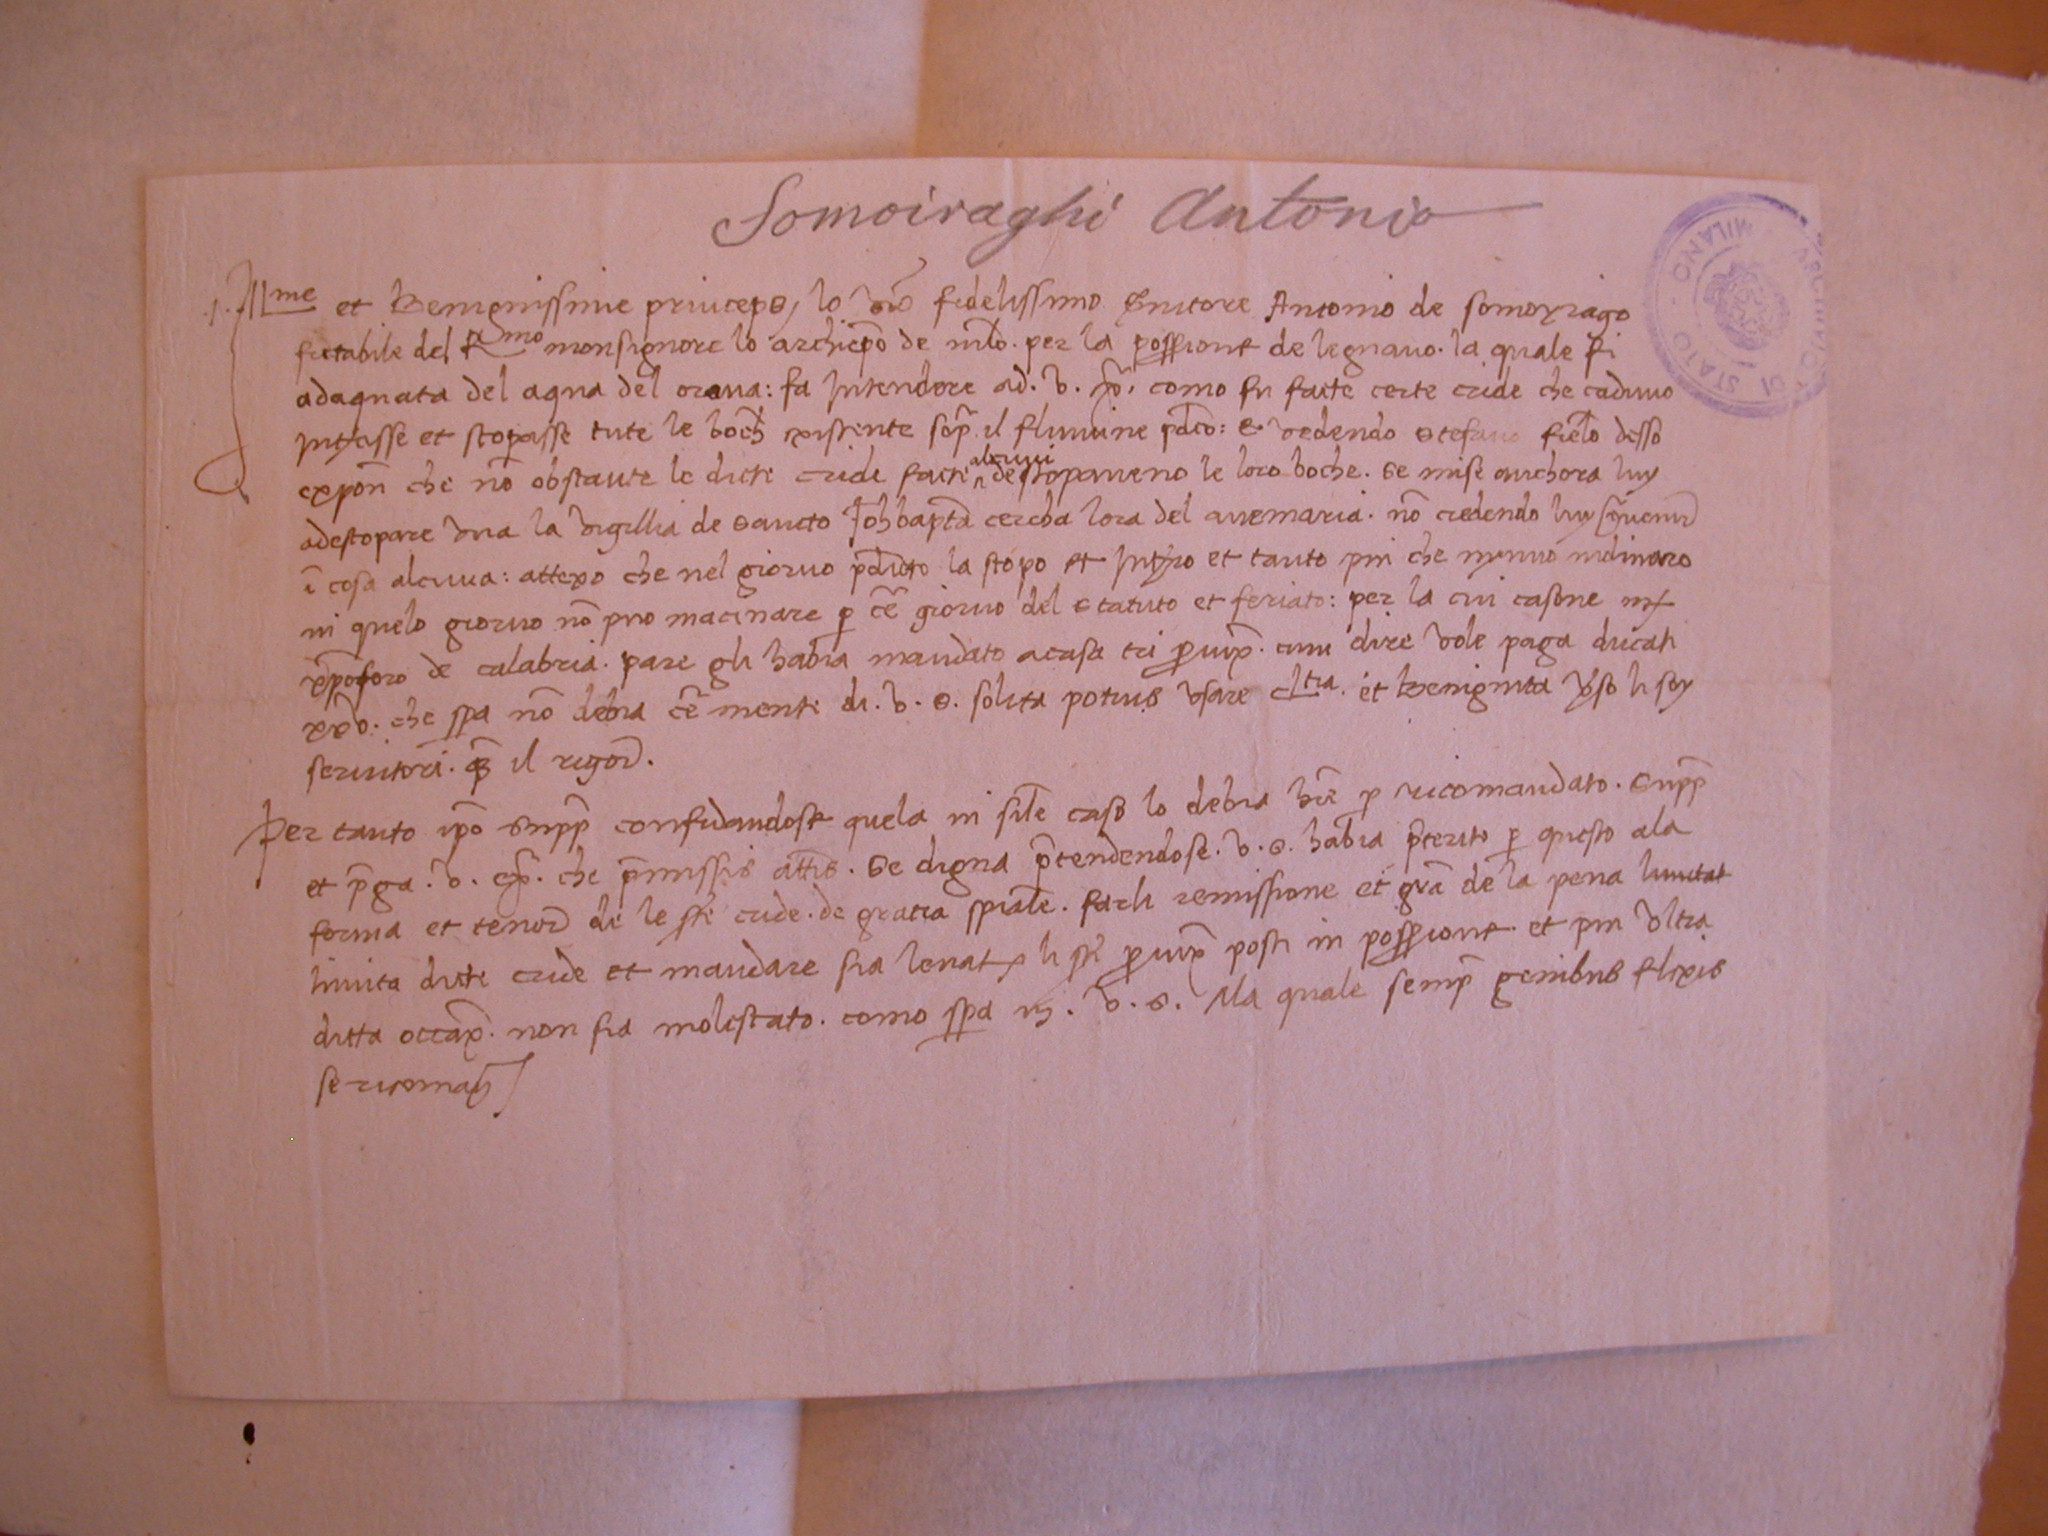 Somoiraghi Antonio
ARCHIVIO DI STATO - MILANO
.Ill.me et Benignissime princeps, lo vro fidelissimo Svitore Antonio de somoyrago
fictabile del R.mo monsignore lo archiepo de mlo. per la possione de legnano. la quale si
adaquata del aqua del orona: fa intendere ad. v. ex. como fu facte certe cride che caduno
et stopasse tute le boch existente sop il fliumine pdco: & vedendo Stefano fiolo desso
expon che no obstante le dicte cride facte alcuni destopaveno le loro boche. se mise anchora luy
adestopare una la vigillia de Sancto Joh bapta cercha lora del avemaria. no credendo luy
i cosa alcuna: attexo che nel giorno pdicto la stopo et et tanto piu che nynuo molinaro
in quelo giorno no puo macinare p ce giorno del statuto et feriato: per la cui casone
xpoforo de calabria. pare gli habia mandato acasa tri cum dire vole paga ducati
xxv. che spa no debia ce mente di. v. s. solita potius usare cl.tia. et Benignita vso li soy
servitori. il rigor.
Per tanto ipo Supp confidandose quela in sile caso lo debia hre p ricomandato. Supp
et pga. v. ex. che pmissis attis. se digna ptendendose. v. s. habia pterito p questo ala
forma et tenor de le cride. de gratia spiale. farli remissione et gra de la pena limitat
limita dicte cride et mandare sia levat li posti in possione. et piu ultra
dicta occax. non sia molestato. como spa in. v. s. Ala quale semp genibus flexis
se ricoma